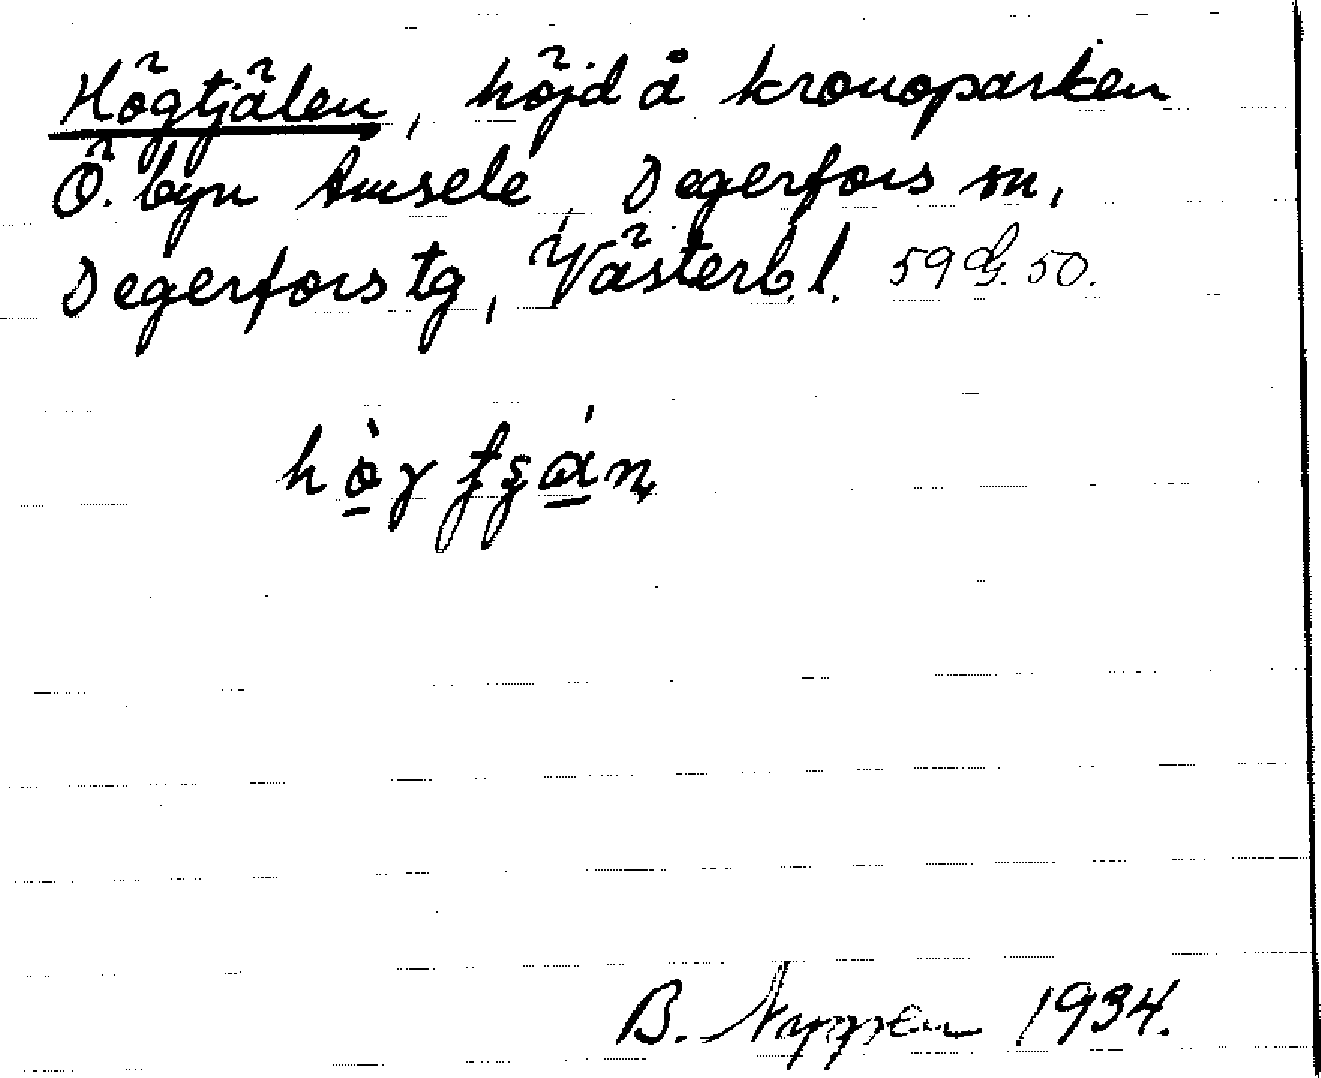 Högtjälen, höjd å kronoparken
Ö. byn Åmsele, Degerfors sn,
Degerfors tg, Västerb. l. 59 G. 50.
B. Nyppen 1934.